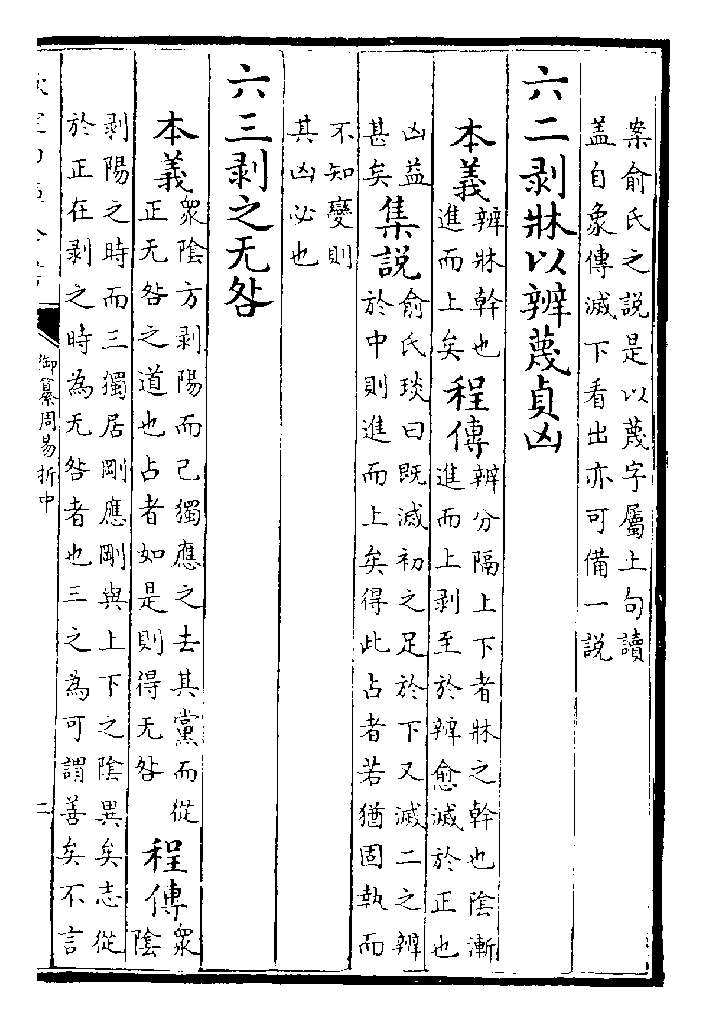 案俞氏之說是以蔑字屬上句讀
盖自象傳滅下看出亦可備一説
六二剥牀以辨蔑貞凶
本義
辨牀幹也
進而上矣
程傳
辨分隔上下者牀之幹也陰漸
進而上剥至於辨愈滅於正也
凶益
甚矣
集説
俞氏琰曰既滅初之足於下又滅二之辨
於中則進而上矣得此占者若猶固執而
不知變則
其凶必也
六三剥之无咎
本義
衆陰方剥陽而己獨應之去其黨而從
正无咎之道也占者如是則得无咎
程傳
衆
陰
剥陽之時而三獨居剛應剛與上下之陰異矣志從
於正在剥之時為无咎者也三之為可謂善矣不言
御纂周易折中
二